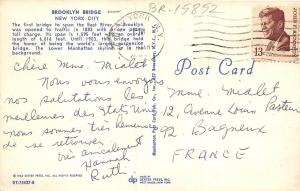 BROOKLYN BRIDGE
NEW YORK CITY
The first bridge to span the East River, to Brooklyn
was opened to traffic in 1883 with one of the
tall span is 1,595 feet with an overall
length of 6,016 feet. Until 1903, this bridge had
the honor of being the world's largest suspension
bridge. The Lower Manhattan skyline is in the
background.
BR-15892
Chère Mme. Mialot
Nous vous envoyons
nos salutations les
meilleures des Etats Unis
nous sommes très heureuses
de se retrouver
très amicalement
Hannah
Ruth
Post Card
JOHN F. KENNEDY
13
Mme. Mialot
12 Avenue Louis Pasteur
92 Bagneux
FRANCE
DT-75427-B
dp
DEXTER PRESS, INC.
WEST NYACK, NEW YORK